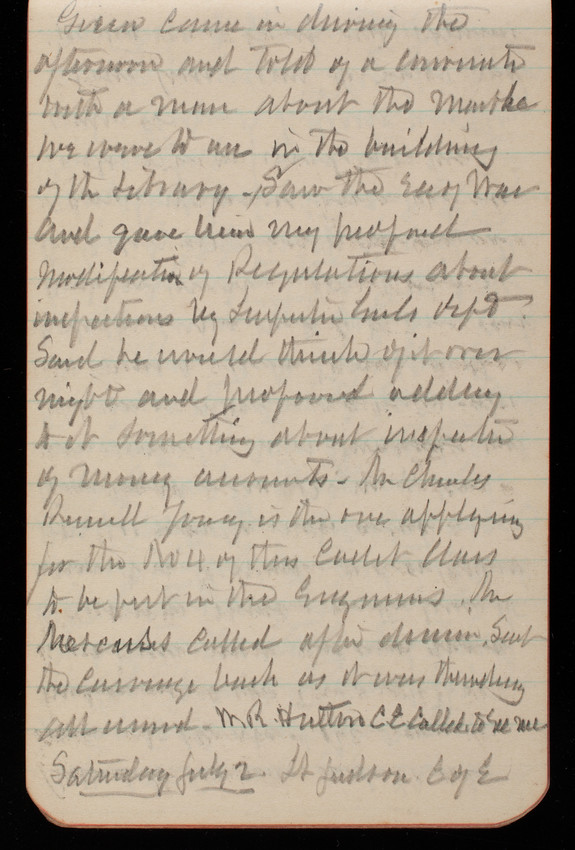 Green came in during the
afternoon and told of a
with a man about the marble
we were to use in the building
of the Library - Saw the Secy War
and gave him my proposed
modification of Regulations about
inspections by Inspector Genls dept.
Said he would think of it over
night and proposed adding
to it something about inspector
of money accounts - Mr Charles
Russell Young is the one applying
for the No 4 of this Cadet Class
to be put in the Engineers. Mr
called after dinner. Sent
the carriage back as it was thundering
all round. W. R. Hutton C E called to see me
Saturday July 2. Lt Judson C of E